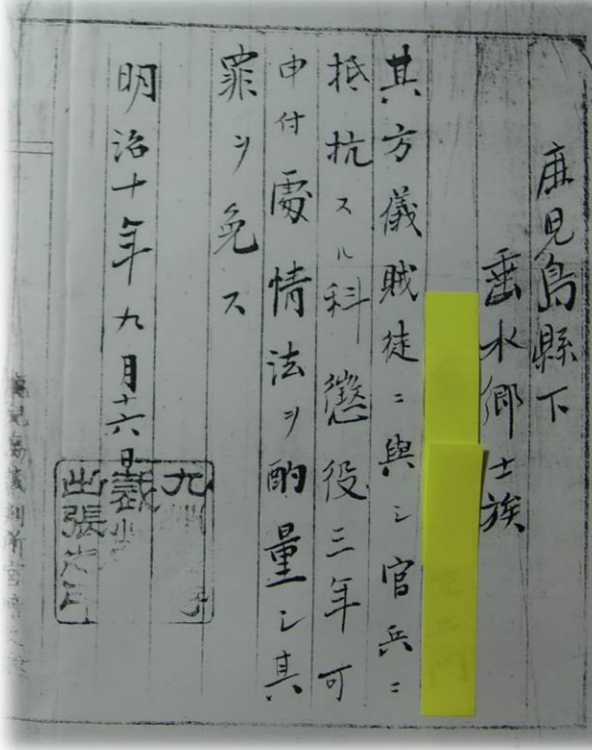 鹿児島縣下
垂水郷士族
其方儀賊徒ニ與シ官兵ニ
抵抗スル科懲役三年可
申付處情法ヲ酌量シ其
罪ヲ免ス
明治十年九月十六日
九州
裁
出張